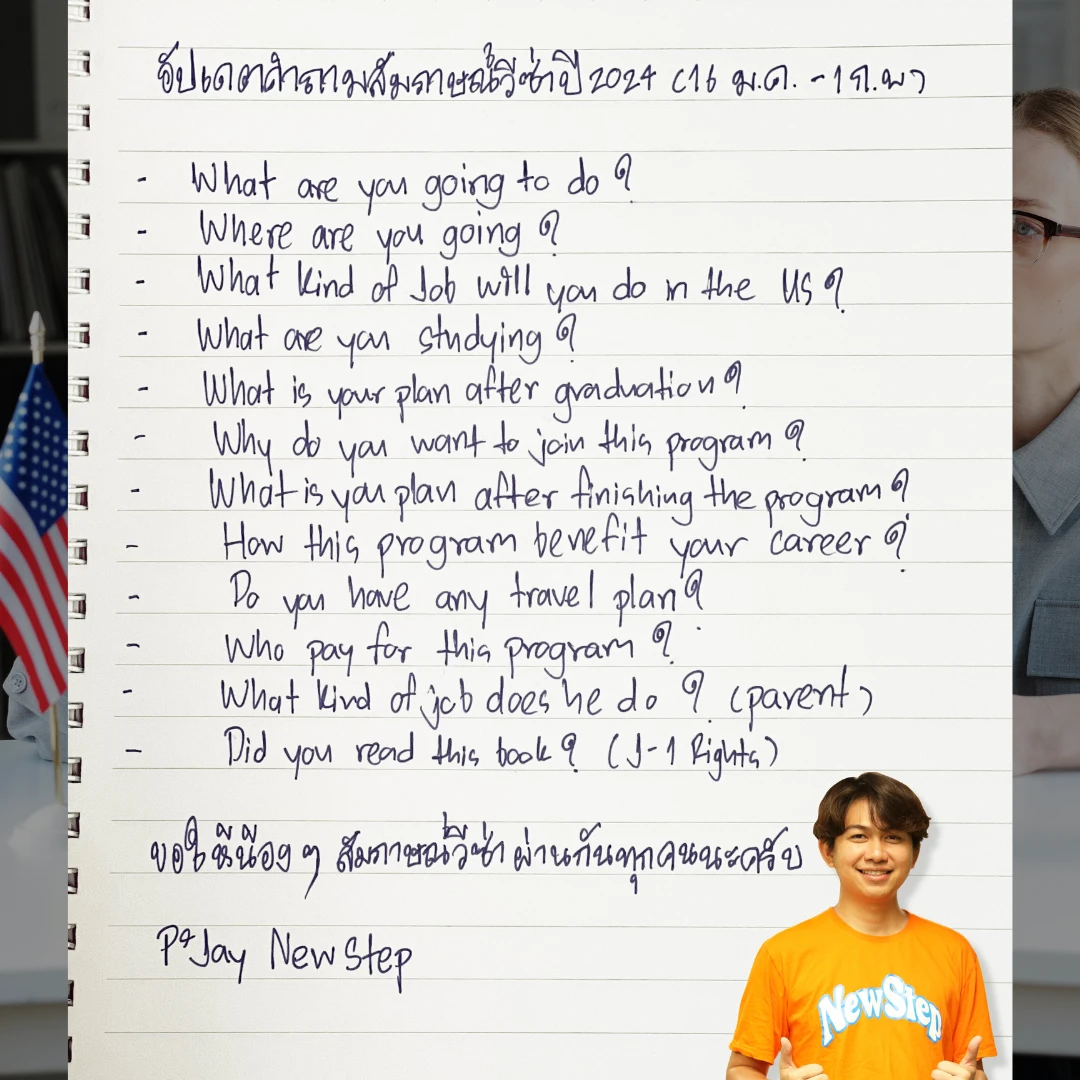 อัปเดตคำถามสัมภาษณ์วีซ่าปี 2024 (16 ม.ค. - 1 ก.พ)
- What are you going to do ?
- Where are you going ?
- What kind of Job will you do in the US ?
- What are you studying ?
- What is your plan after graduation ?
- Why do you want to join this program ?
- What is you plan after finishing the program ?
- How this program benefit your career ?
- Do you have any travel plan ?
- Who pay for this program ?
- What kind of job does he do ? (parent)
- Did you read this book ? (J-1 Rights)
ขอให้น้อง ๆ สัมภาษณ์วีซ่าผ่านกันทุกคนนะครับ
P'Jay New Step
NewStep